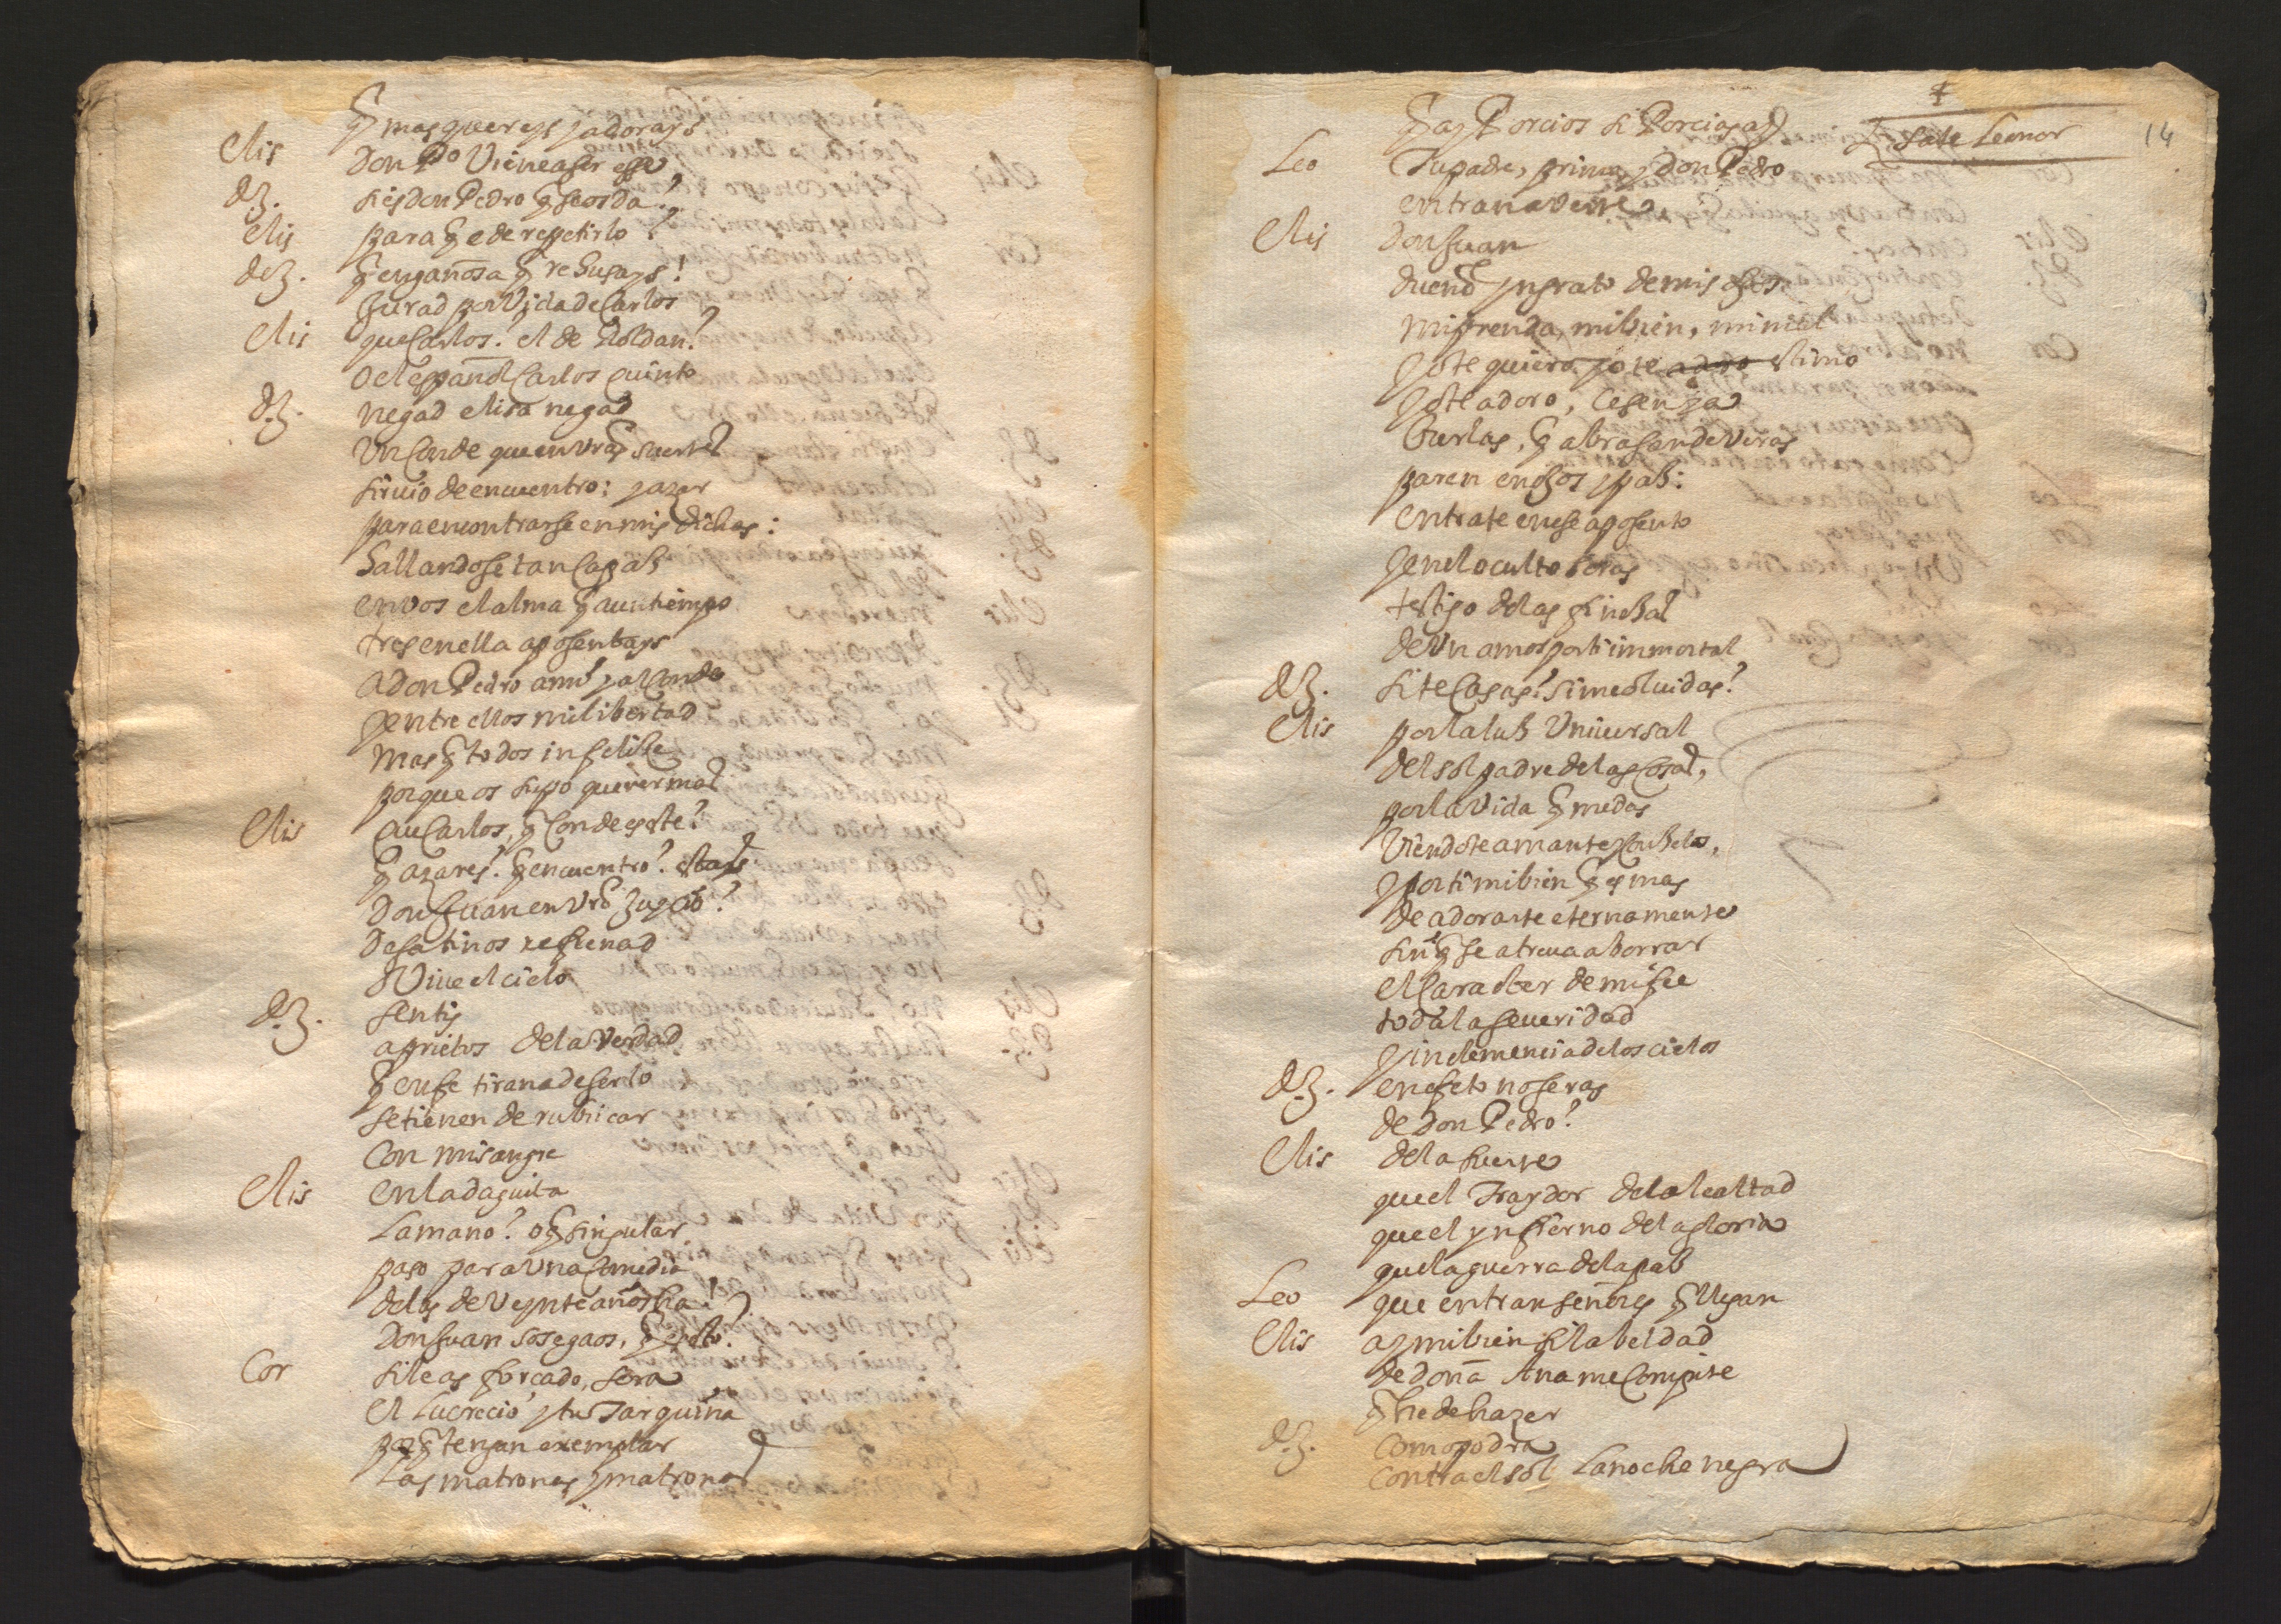 q̃ mas quereys y adorays
Elis Don P.º Viene a ser esse
d.J. si es don Pedro q̃ se os da
elis para q̃ e de repetirlo?
deJ. q̃ engañosa q̃ rehusays!
Jurad por Vida de Carlos
Elis que Carlos? el de Roldan?
o el español Carlos quinto
d.J. negad elisa negad
Vn Conde que en vr̃as suertes
siruio de encuentro; y azar
para encontrarse en mis dichas:
hallandose tan Capaz
en vos el alma q̃ a un tiempo
tres en ella aposentays
a don Pedro a mi y al Conde
y entre ellos mi libertad
mas q̃ todos infelize
porque os supo querer mas
Elis que Carlos, q̃ Conde es este?
q̃ azares? q̃ encuentro? estays
Don Juan en vr̃o Juycio?
Desatinos refrenad
o Viue el cielo
d.J. sentis
aprietos de la Verdad
q̃ en fe tirana de serlo
se tienen de rubricar
Con mi sangre
Elis en la daguita
la mano? o q̃ singular
paso para Vna Comedia
de las de Veynte años ha!
Don Juan sosegaos, q̃ es esto?
Cor si le as forcado, sera
el Lucrecio y tu Tarquina
porq̃ tengan exemplar
Las matronas y matronos
14
q̃ ay Porcios si Porcias ay
Sale Leonor
Leo Tu padre, primo y don Pedro
entran a verte
Elis Don Juan
dueño yngrato de mis ojos
mi prenda, mi bien, mi mal
yo te quiero yo te adoro estimo
yo te adoro, cesen ya
burlas, q̃ abrasan de Veras
paren enojos y paz:
entrate en ese aposento
y en el oculto seras
testigo de las finezas
de Vn amor por ti immortal
d.J. si te Casas? si me oluidas?
Elis por la luz Vniuersal
del sol padre de las Cosas,
por la Vida q̃ me das
Viendote amante y Con zelos,
y por ti mi bien q̃ es mas
de adorarte eternamente
sin q̃ se atreua a borrar
el Caracter de mi fee
toda la seueridad
y inclemencia de los cielos
d.J. en efeto no seras
de Don Pedro?
Elis de la suerte
que el Traydor de la lealtad
que el ynfierno de la gloria
que la guerra de la paz
Leo que entran señores q̃ llegan
Elis ay mi bien si la beldad
de doña Ana me Compite
q̃ he de hazer
d.J. Como podra
Contra el sol La noche negra